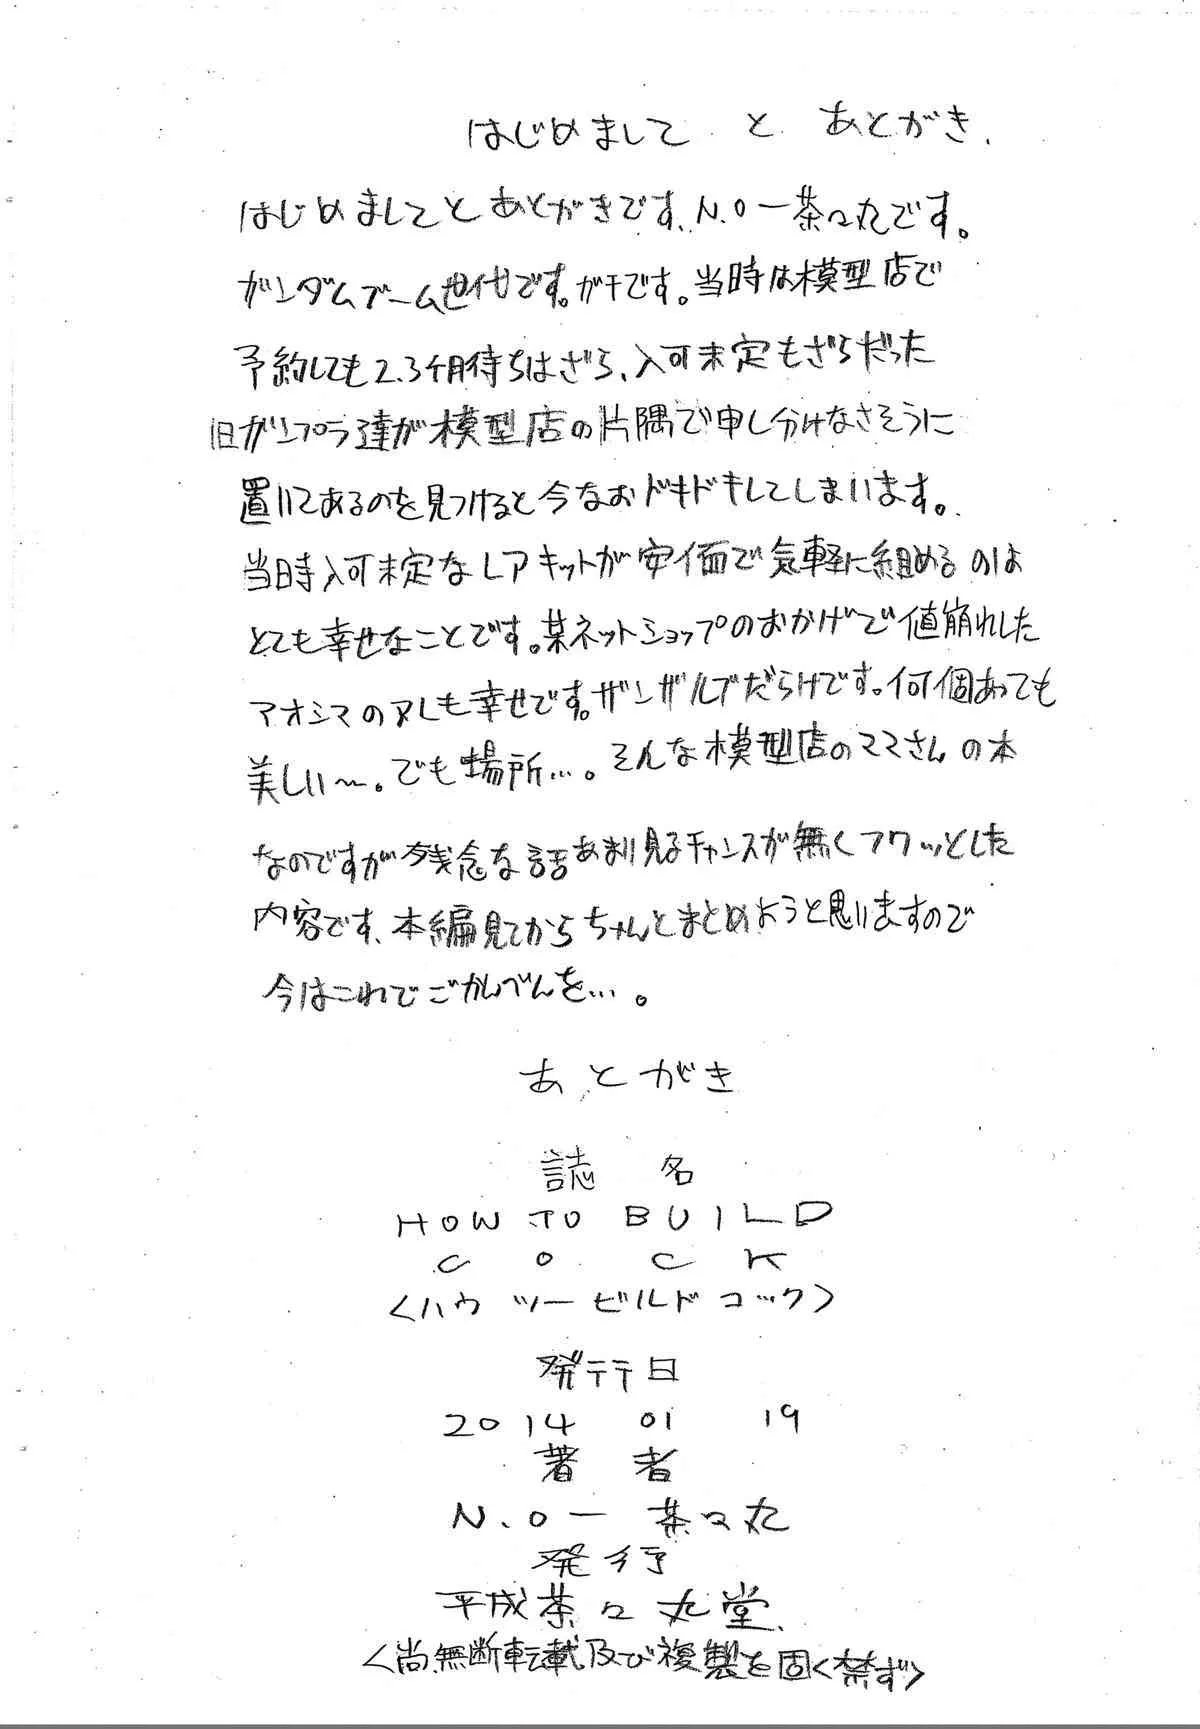 はじめまして と あとがき.
はじめましてと あとがきです、N.O一茶々丸です。
ガンダムブーム世代です。ガチです。当時は模型店で
予約しても2.3ヶ月待ちはざら、入可未定もざらだった
旧ガンプラ達が模型店の片隅で申し分けなさそうに
置いてあるのを見つけると今なおドキドキしてしまいます。
当時入可未定なレアキットが安価で気軽に組めるのは
とても幸せなことです。某ネットショップのおかげで値崩れした
アオシマのアレも幸せです。ザンザルブだらけです。何個あっても
美しい〜。でも場所…。そんな模型店のママさんの本
なのですが残念な話あまり見るチャンスが無くフワッとした
内容です、本編見てからちゃんとまとめようと思いますので
今はこれでごかんべんを…。
あとがき
誌名
HOW TO BUILD
COCK
<ハウ ツー ビルド コック>
発行日
2014 01 19
著者
N.O一 茶々丸
発行
平成茶々丸堂
<尚、無断転載及び複製を固く禁ず>